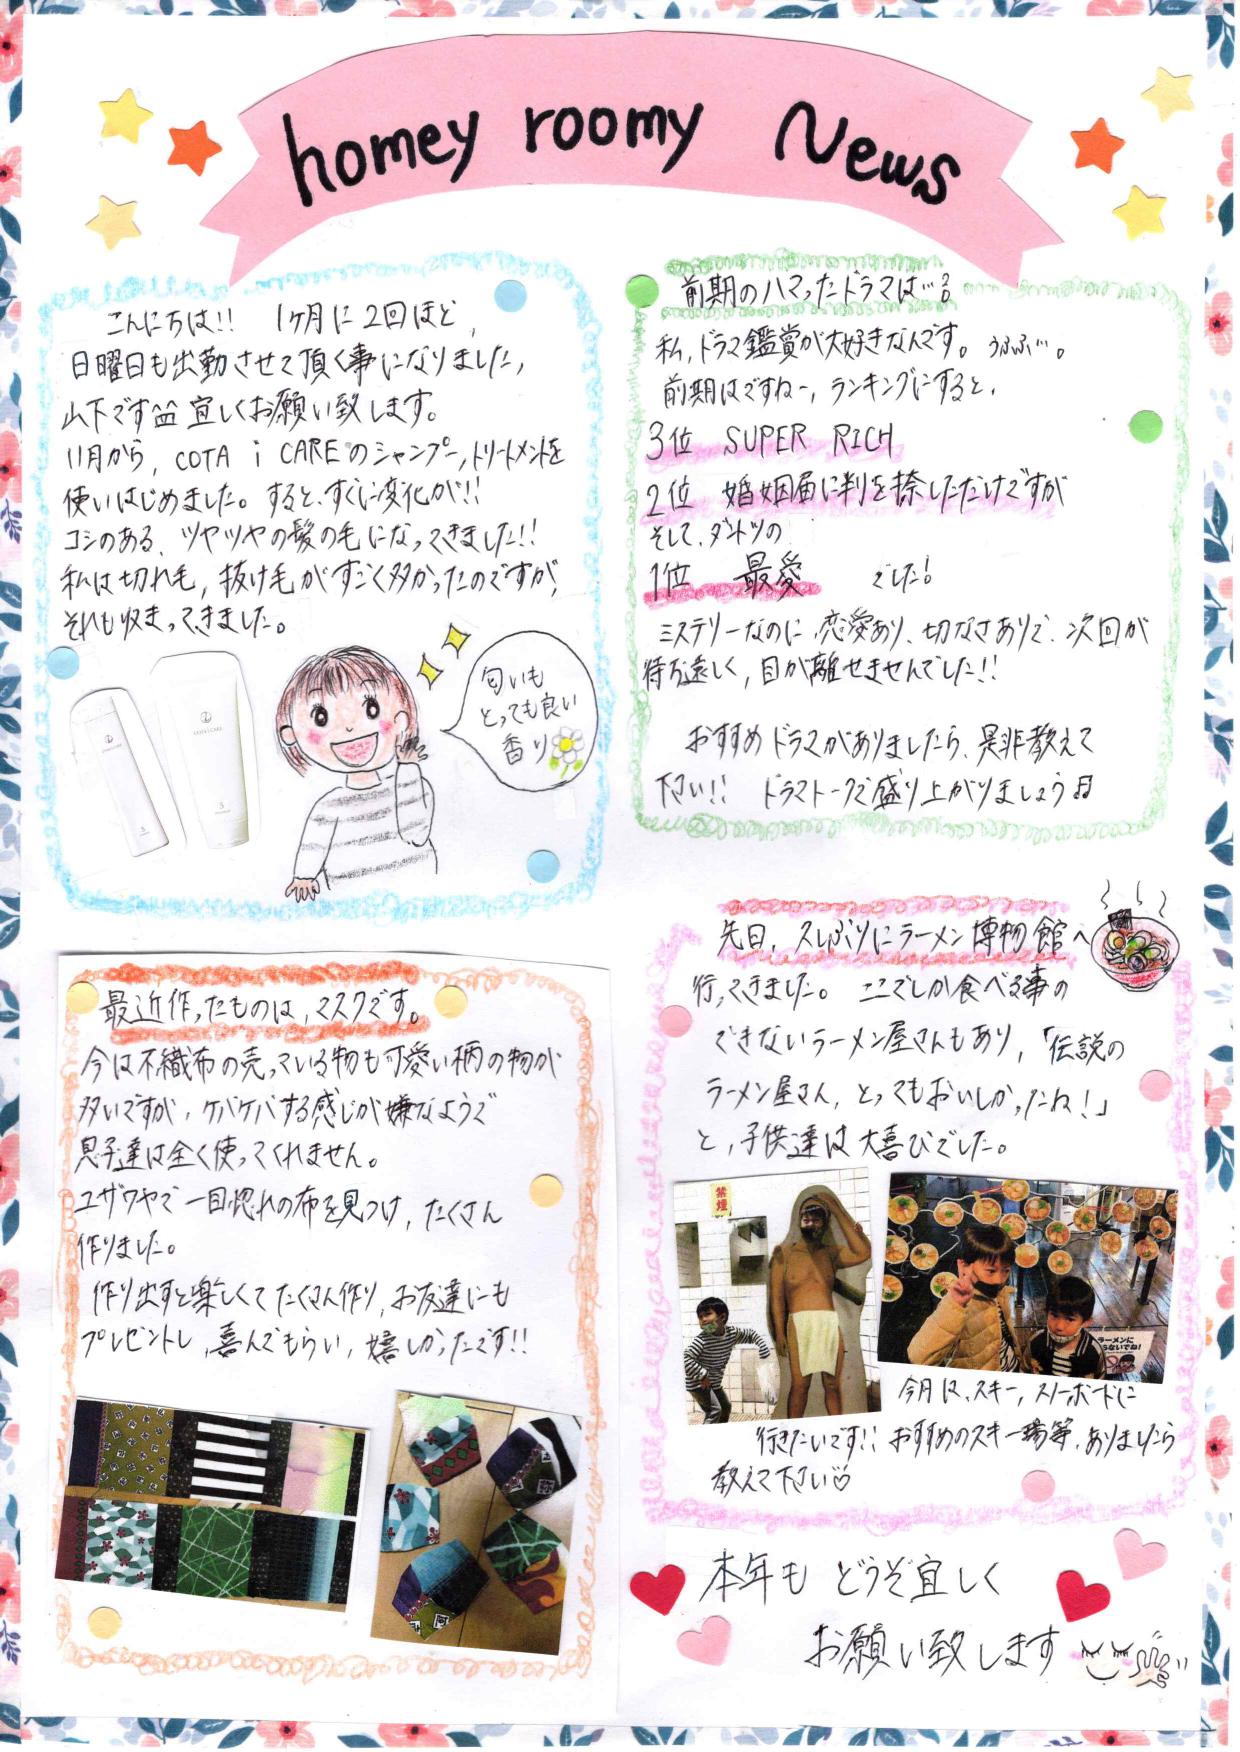 homey roomy News
こんにちは!! 1ヶ月に2回ほど、
日曜日も出勤させて頂く事になりました、
山下です 宜しくお願い致します。
11月から、COTA i CAREのシャンプー,トリートメントを
使いはじめました。すると、すぐに変化が!!
コシのある、ツヤツヤの髪の毛になってきました!!
私は切れ毛,抜け毛がすごく多かったのですが,
それも収まってきました。
匂いも
とっても良い
香り
COTA i CARE
3
COTA i CARE
3
前期のハマったドラマは…?
私、ドラマ鑑賞が大好きなんです。うふふ…。
前期はですねー、ランキングにすると、
3位 SUPER RICH
2位 婚姻届に判を捺しただけですが
そして、ダントツの
1位 最愛 でした!
ミステリーなのに、恋愛あり、切なさありで、次回が
待ち遠しく,目が離せませんでした!!
おすすめドラマがありましたら、是非教えて
下さい!! ドラマトークで盛り上がりましょう♫
最近作ったものは,マスクです。
今は不織布の売っている物も可愛い柄の物が
多いですが、ケバケバする感じが嫌なようで
息子達は全く使ってくれません。
ユザワヤで一目惚れの布を見つけ,たくさん
作りました。
作り出すと楽しくてたくさん作り,お友達にも
プレゼントし,喜んでもらい,嬉しかったです!!
先日,久しぶりにラーメン博物館へ
行ってきました。ここでしか食べる事の
できないラーメン屋さんもあり,「伝説の
ラーメン屋さん,とってもおいしかったね!」
と,子供達は大喜びでした。
禁煙
ラーメンに
らないでね!
今月は、スキー,スノーボードに
行きたいです!! おすすめのスキー場等、ありましたら
教えて下さい♡
本年もどうぞ宜しく
お願い致します